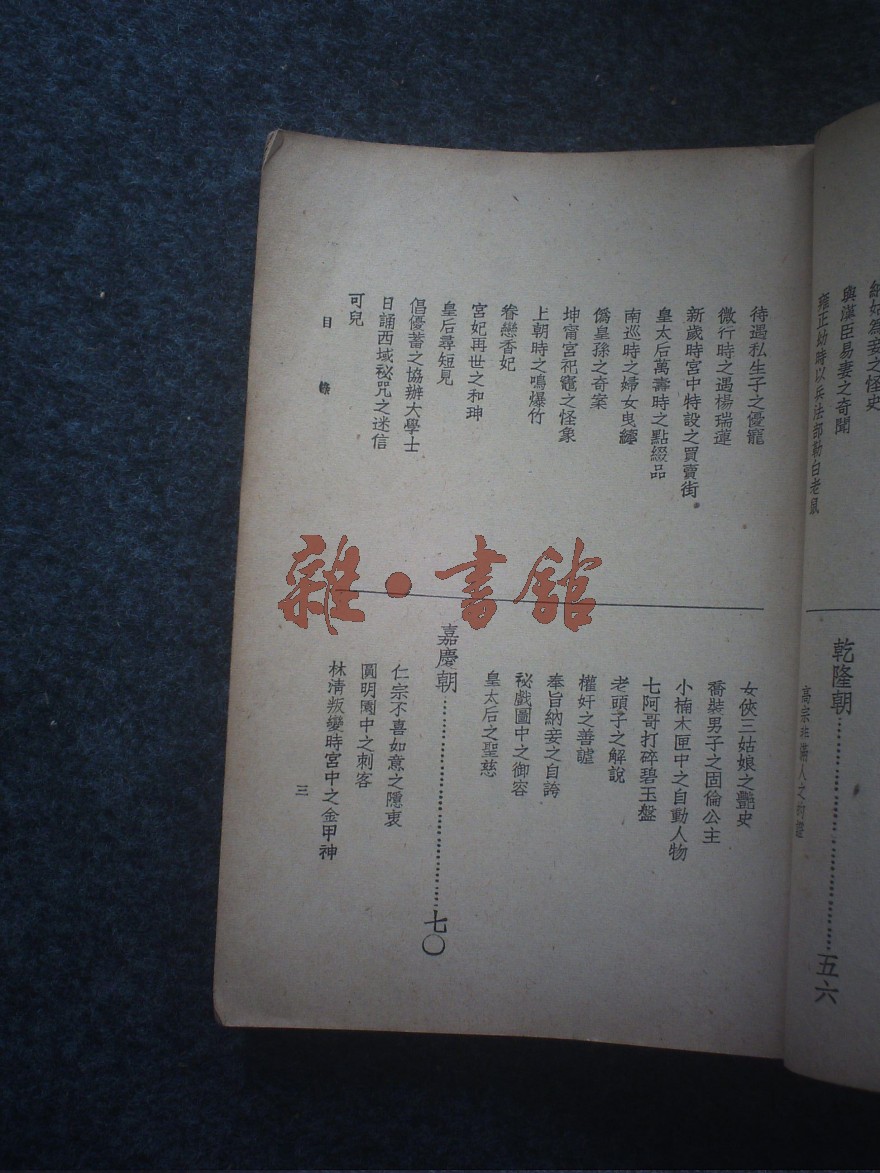 納姑為妾之怪史
與漢臣易妻之奇聞
雍正幼時以兵法部勒白老鼠
乾隆朝……五六
待遇私生子之優寵
微行時之遇楊瑞蓮
新歲時宮中特設之買賣街
皇太后萬壽時之點綴品
南巡時之婦女曳縴
僞皇孫之奇案
坤甯宮祀竈之怪象
上朝時之鳴爆竹
眷戀香妃
宮妃再世之和珅
皇后尋短見
倡優蓄之協辦大學士
日誦西域秘咒之迷信
可兒
女俠三姑娘之艷史
喬裝男子之固倫公主
小楠木匣中之自動人物
七阿哥打碎碧玉盤
老頭子之解說
權奸之善謔
奉旨納妾之自誇
秘戲圖中之御容
皇太后之聖慈
嘉慶朝……七〇
仁宗不喜如意之隱衷
圓明園中之刺客
林清叛變時宮中之金甲神
目錄
三
雜·書館